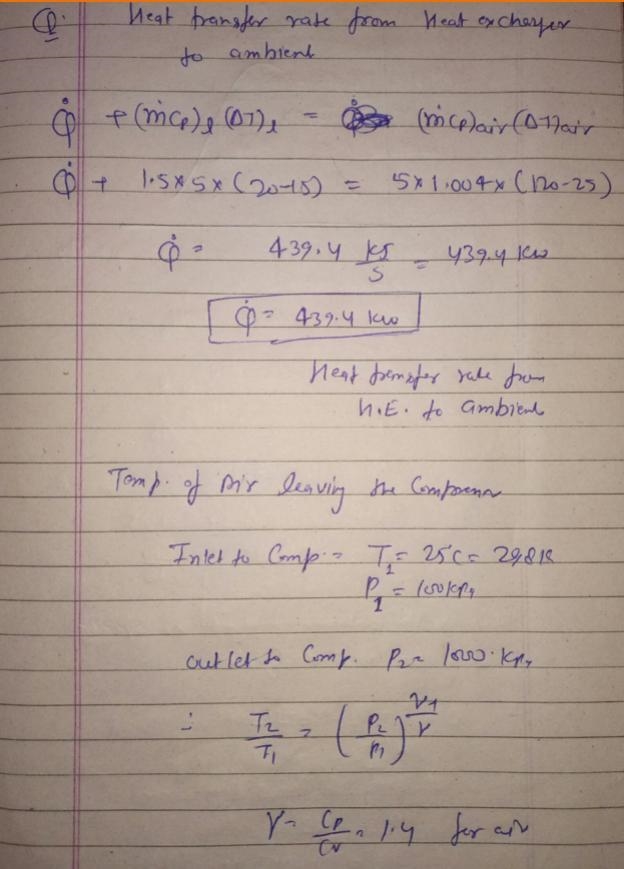 Q. Heat transfer rate from Heat exchanger
to ambient
Q̇ + (ṁcp)l (ΔT)l = (ṁcp)air (ΔT)air
Q̇ + 1.5×5×(20-15) = 5×1.004×(120-25)
Q̇ = 439.4 kJ/s = 439.4 kW
Q̇ = 439.4 kW
Heat transfer rate from
H.E. to ambient
Temp. of Air leaving the Compressor
Inlet to Comp. = T₁ = 25°C = 298 K
P₁ = 100 kPa
outlet to Comp. P₂ = 1000 kPa
∴ T₂/T₁ = (P₂/P₁)^(γ-1/γ)
γ = Cp/Cv = 1.4 for air